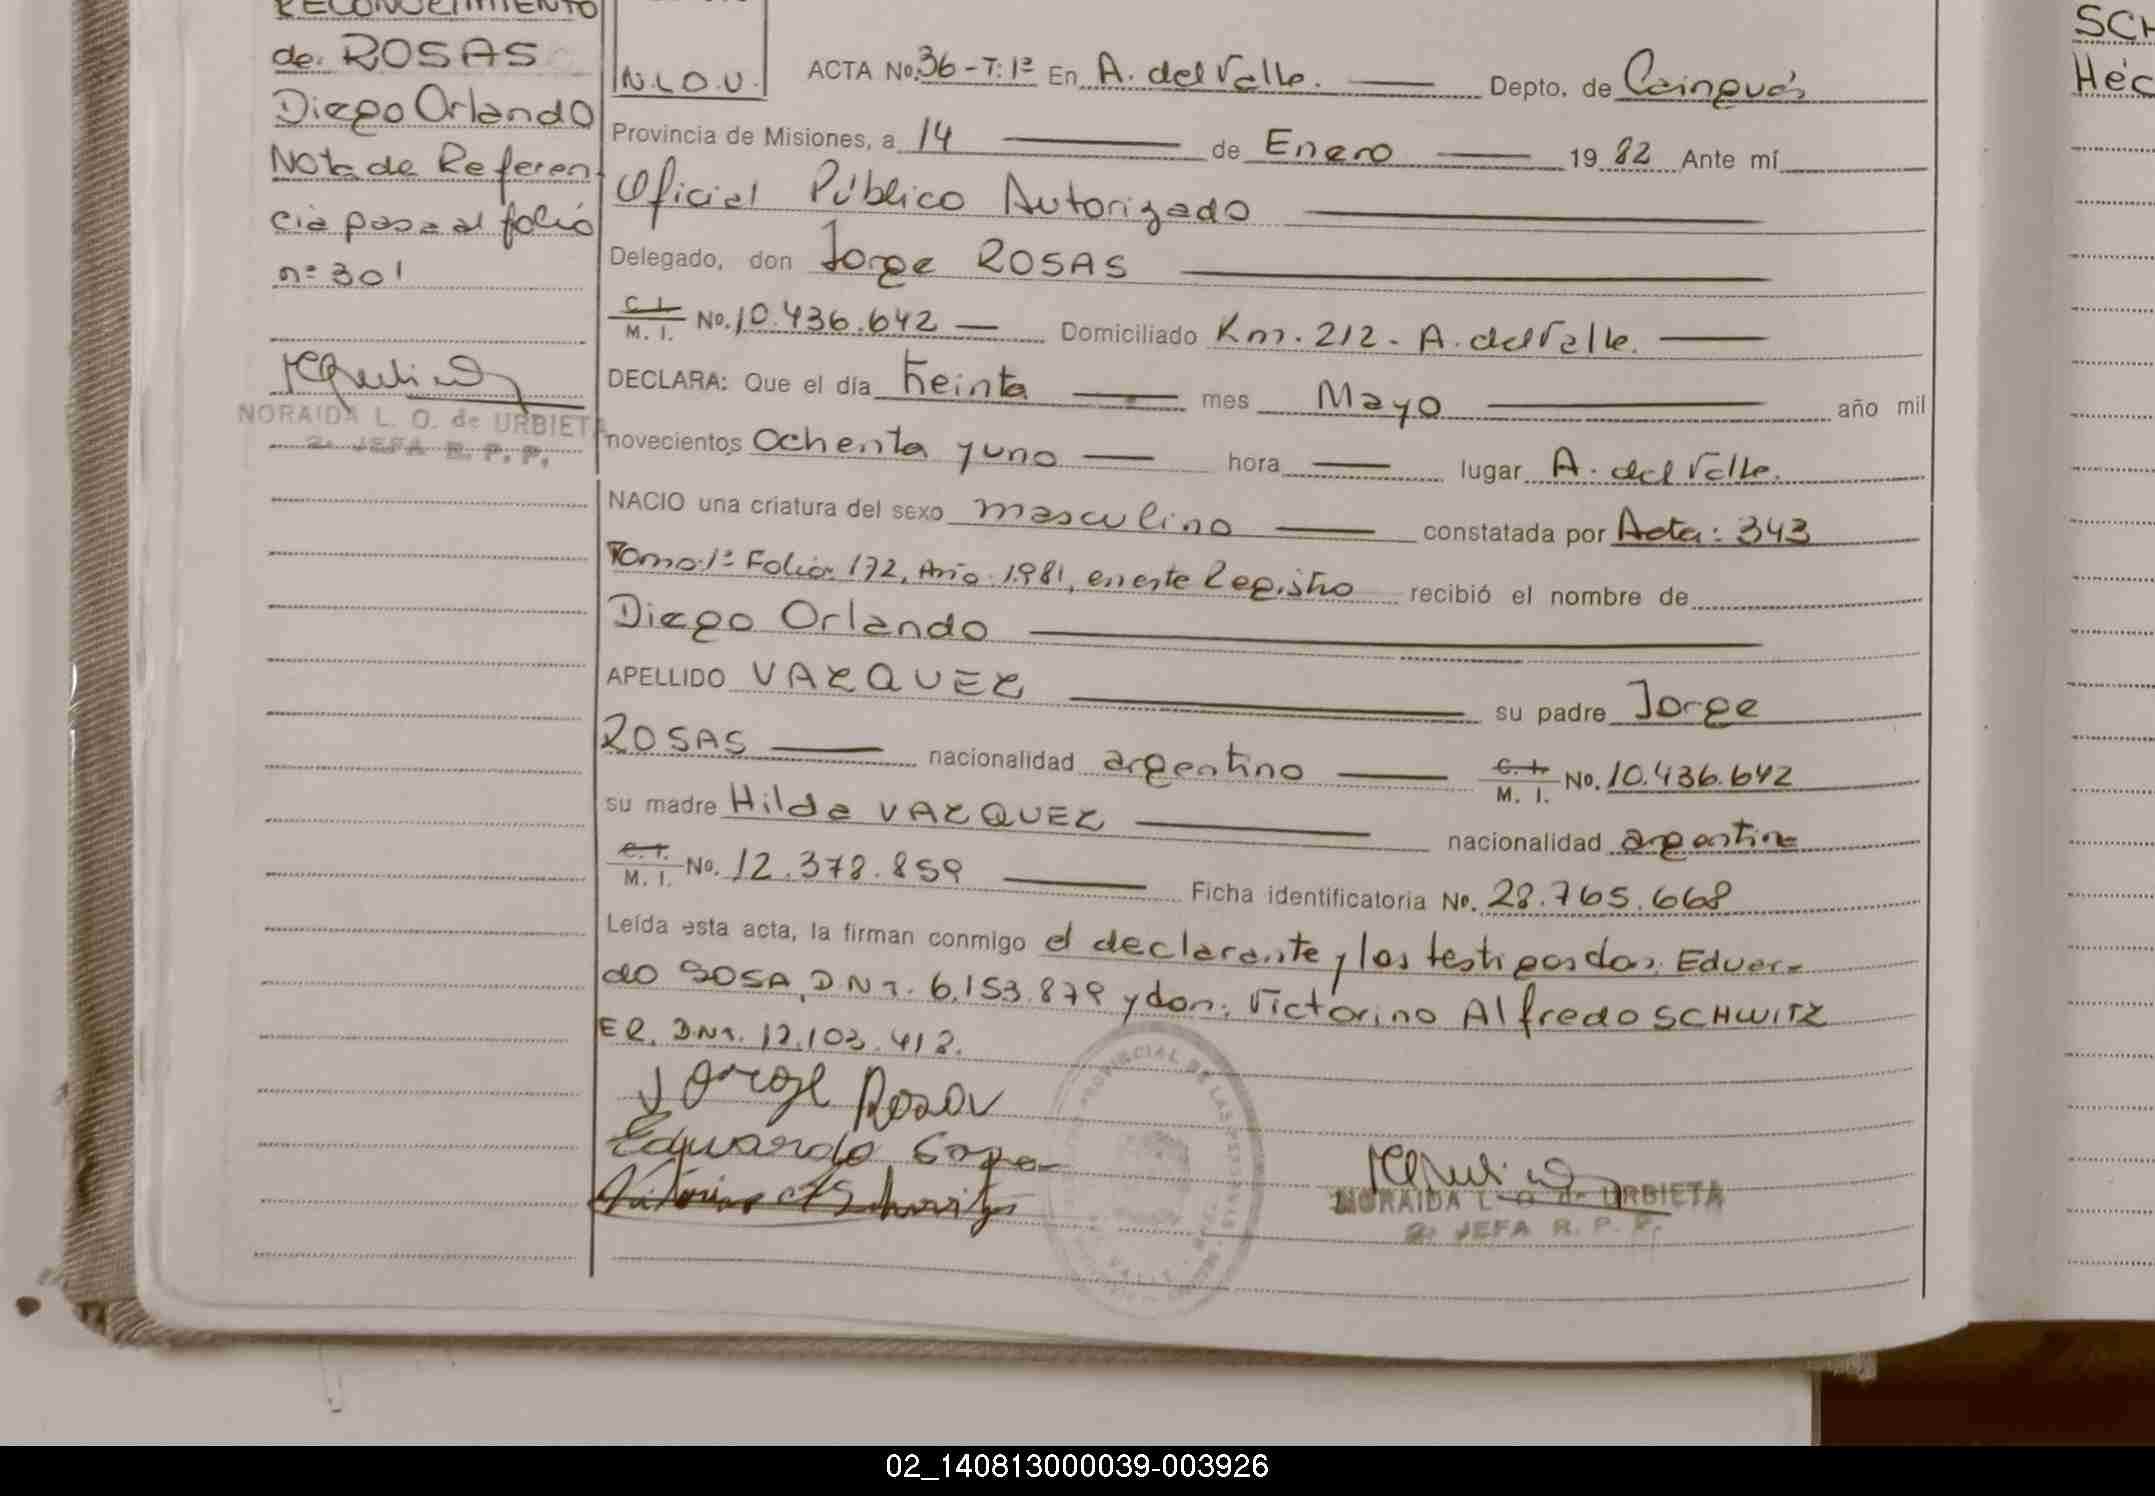 RECONOCIMIENTO
de. ROSAS
Diego Orlando
Nota de Referen
cia pasa al folio
nº 301
NORAIDA L. O. de URBIETA
2ª JEFA R. P. P.
N.L.O.U.
ACTA No. 36 - T: 1º En A. del Valle. Depto. de Cainguás
Provincia de Misiones, a 14 de Enero 19 82 Ante mí
Oficial Público Autorizado
Delegado, don Jorge ROSAS
C. I. M. I. No. 10.436.642 Domiciliado Km. 212 - A. del Valle.
DECLARA: Que el día treinta mes Mayo año mil
novecientos ochenta y uno hora lugar A. del Valle.
NACIO una criatura del sexo masculino constatada por Acta: 343
Tomo: 1º Folio: 172, Año: 1981, en este Registro recibió el nombre de
Diego Orlando
APELLIDO VAZQUEZ su padre Jorge
ROSAS nacionalidad argentino C. I. M. I. No. 10.436.642
su madre Hilda VAZQUEZ nacionalidad argentina
C. I. M. I. No. 12.378.859 Ficha identificatoria No. 28.765.668
Leída esta acta, la firman conmigo el declarante y los testigos don: Eduar-
do SOSA, D.N.I. 6.153.879 y don: Victorino Alfredo SCHWITZ
ER. D.N.I. 12.103.412.
Jorge Rosas
Eduardo Sosa
NORAIDA L. O. de URBIETA
2ª JEFA R. P. P.
PROVINCIAL DE LAS PERSONAS
SCH
Héc
02_140813000039-003926